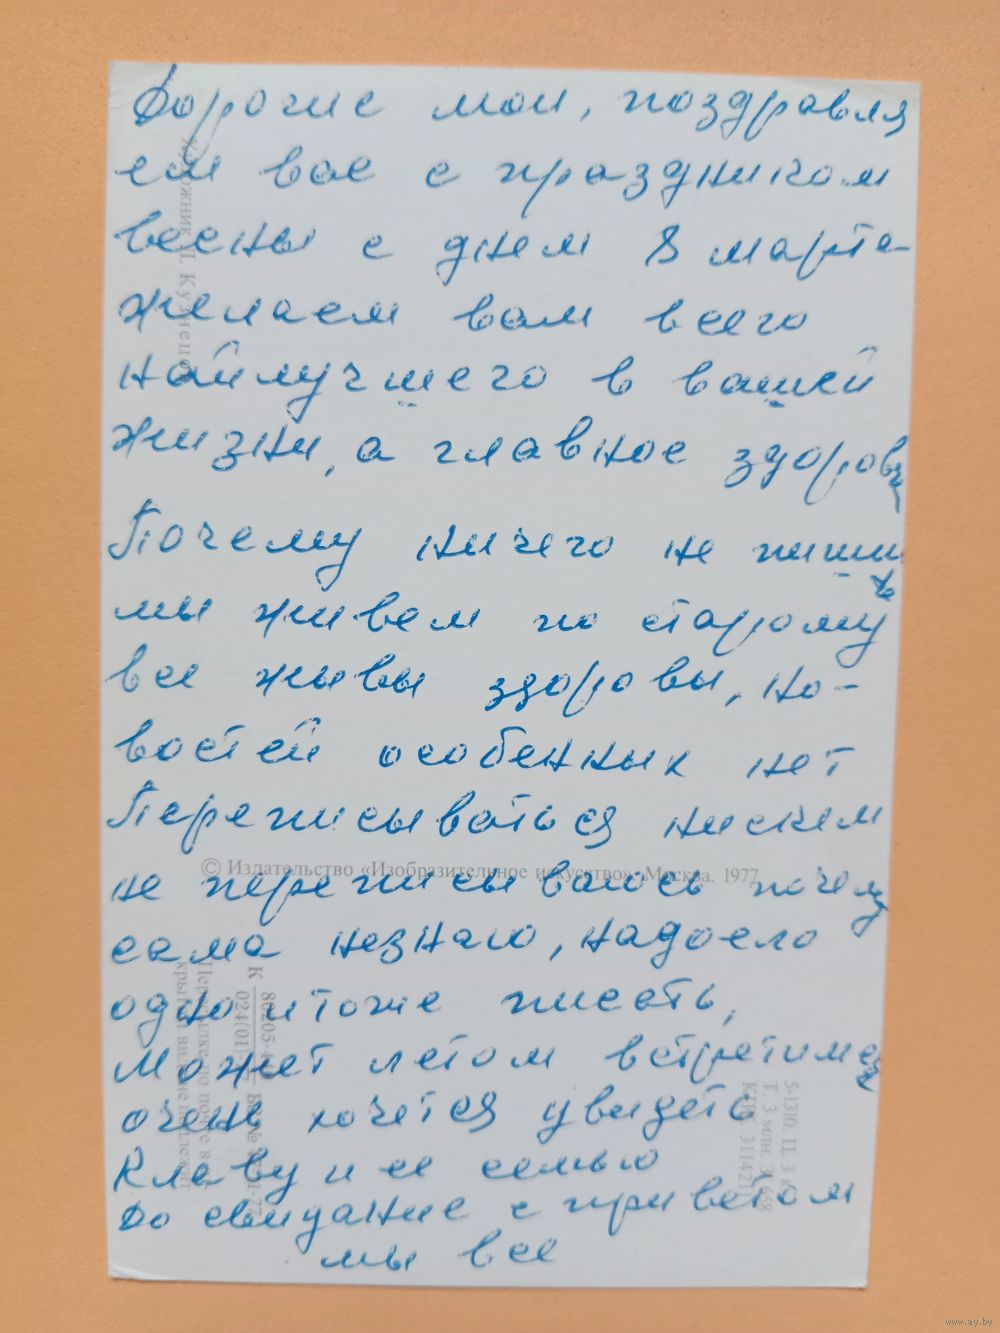 Дорогие мои, поздравля
ем вас с праздником
весны с днем 8 марта-
желаем вам всего
найлучшего в вашей
жизни, а главное здоровья
Почему ничего не пишите
мы живем по старому
все живы здоровы, но-
востей особенных нет
Переписываться нискем
не переписываюсь почему
сама незнаю, надоело
одно итоже писать,
может летом встретимся
очень хочется увидеть
Клаву и ее семью
До свидание с приветом
мы все
Художник П. Кузнецов
© Издательство «Изобразительное искусство». Москва. 1977
5-1310. Ц. 3 к.
www.ay.by